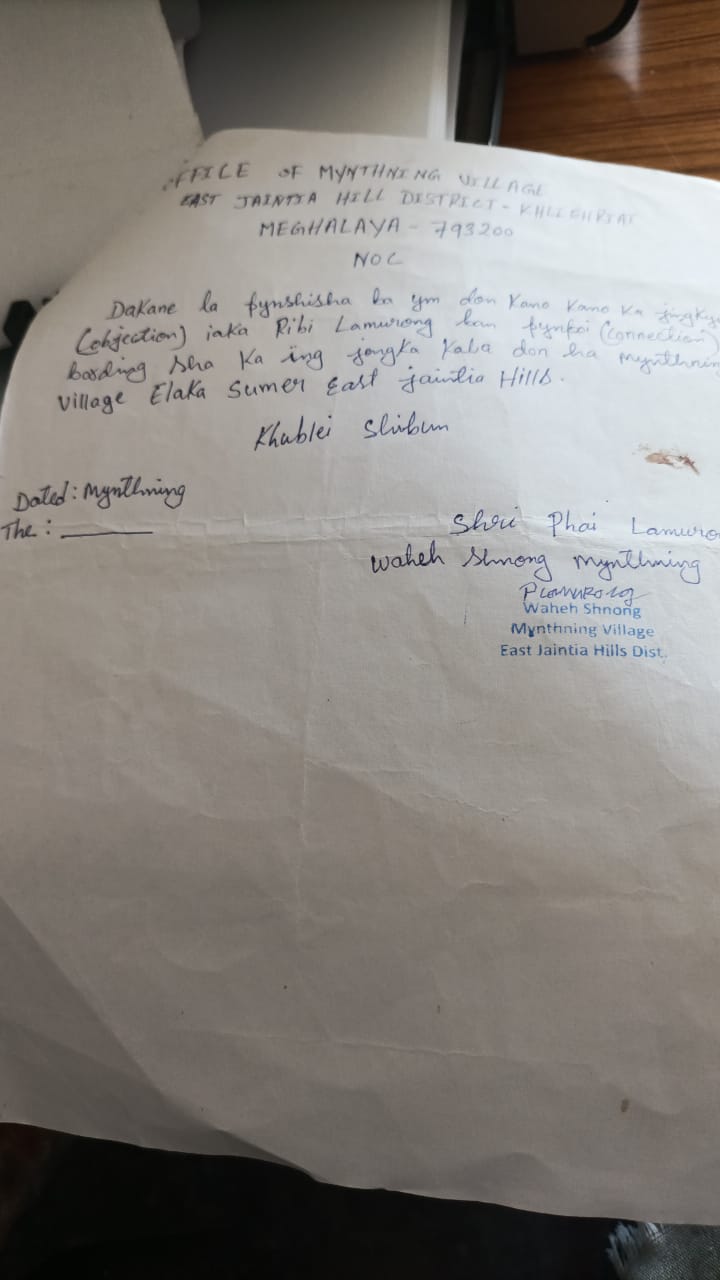 OFFICE OF MYNTHNING VILLAGE
EAST JAINTIA HILL DISTRICT - KHLIEHRIAT
MEGHALAYA - 793200
NOC
Dakane la pynshisha ba ym don Kano Kano Ka
(objection) iaka Ribi Lamurong ban pynpoi (connection)
Sha Ka ing jongka Kaba don ha Mynthning
village Elaka Sumer East jaintia Hills.
Khublei Shibun
Dated: Mynthning
The:
Shri Phai
Waheh Shnong Mynthning
Plamurong
Waheh Shnong
Mynthning Village
East Jaintia Hills Dist.